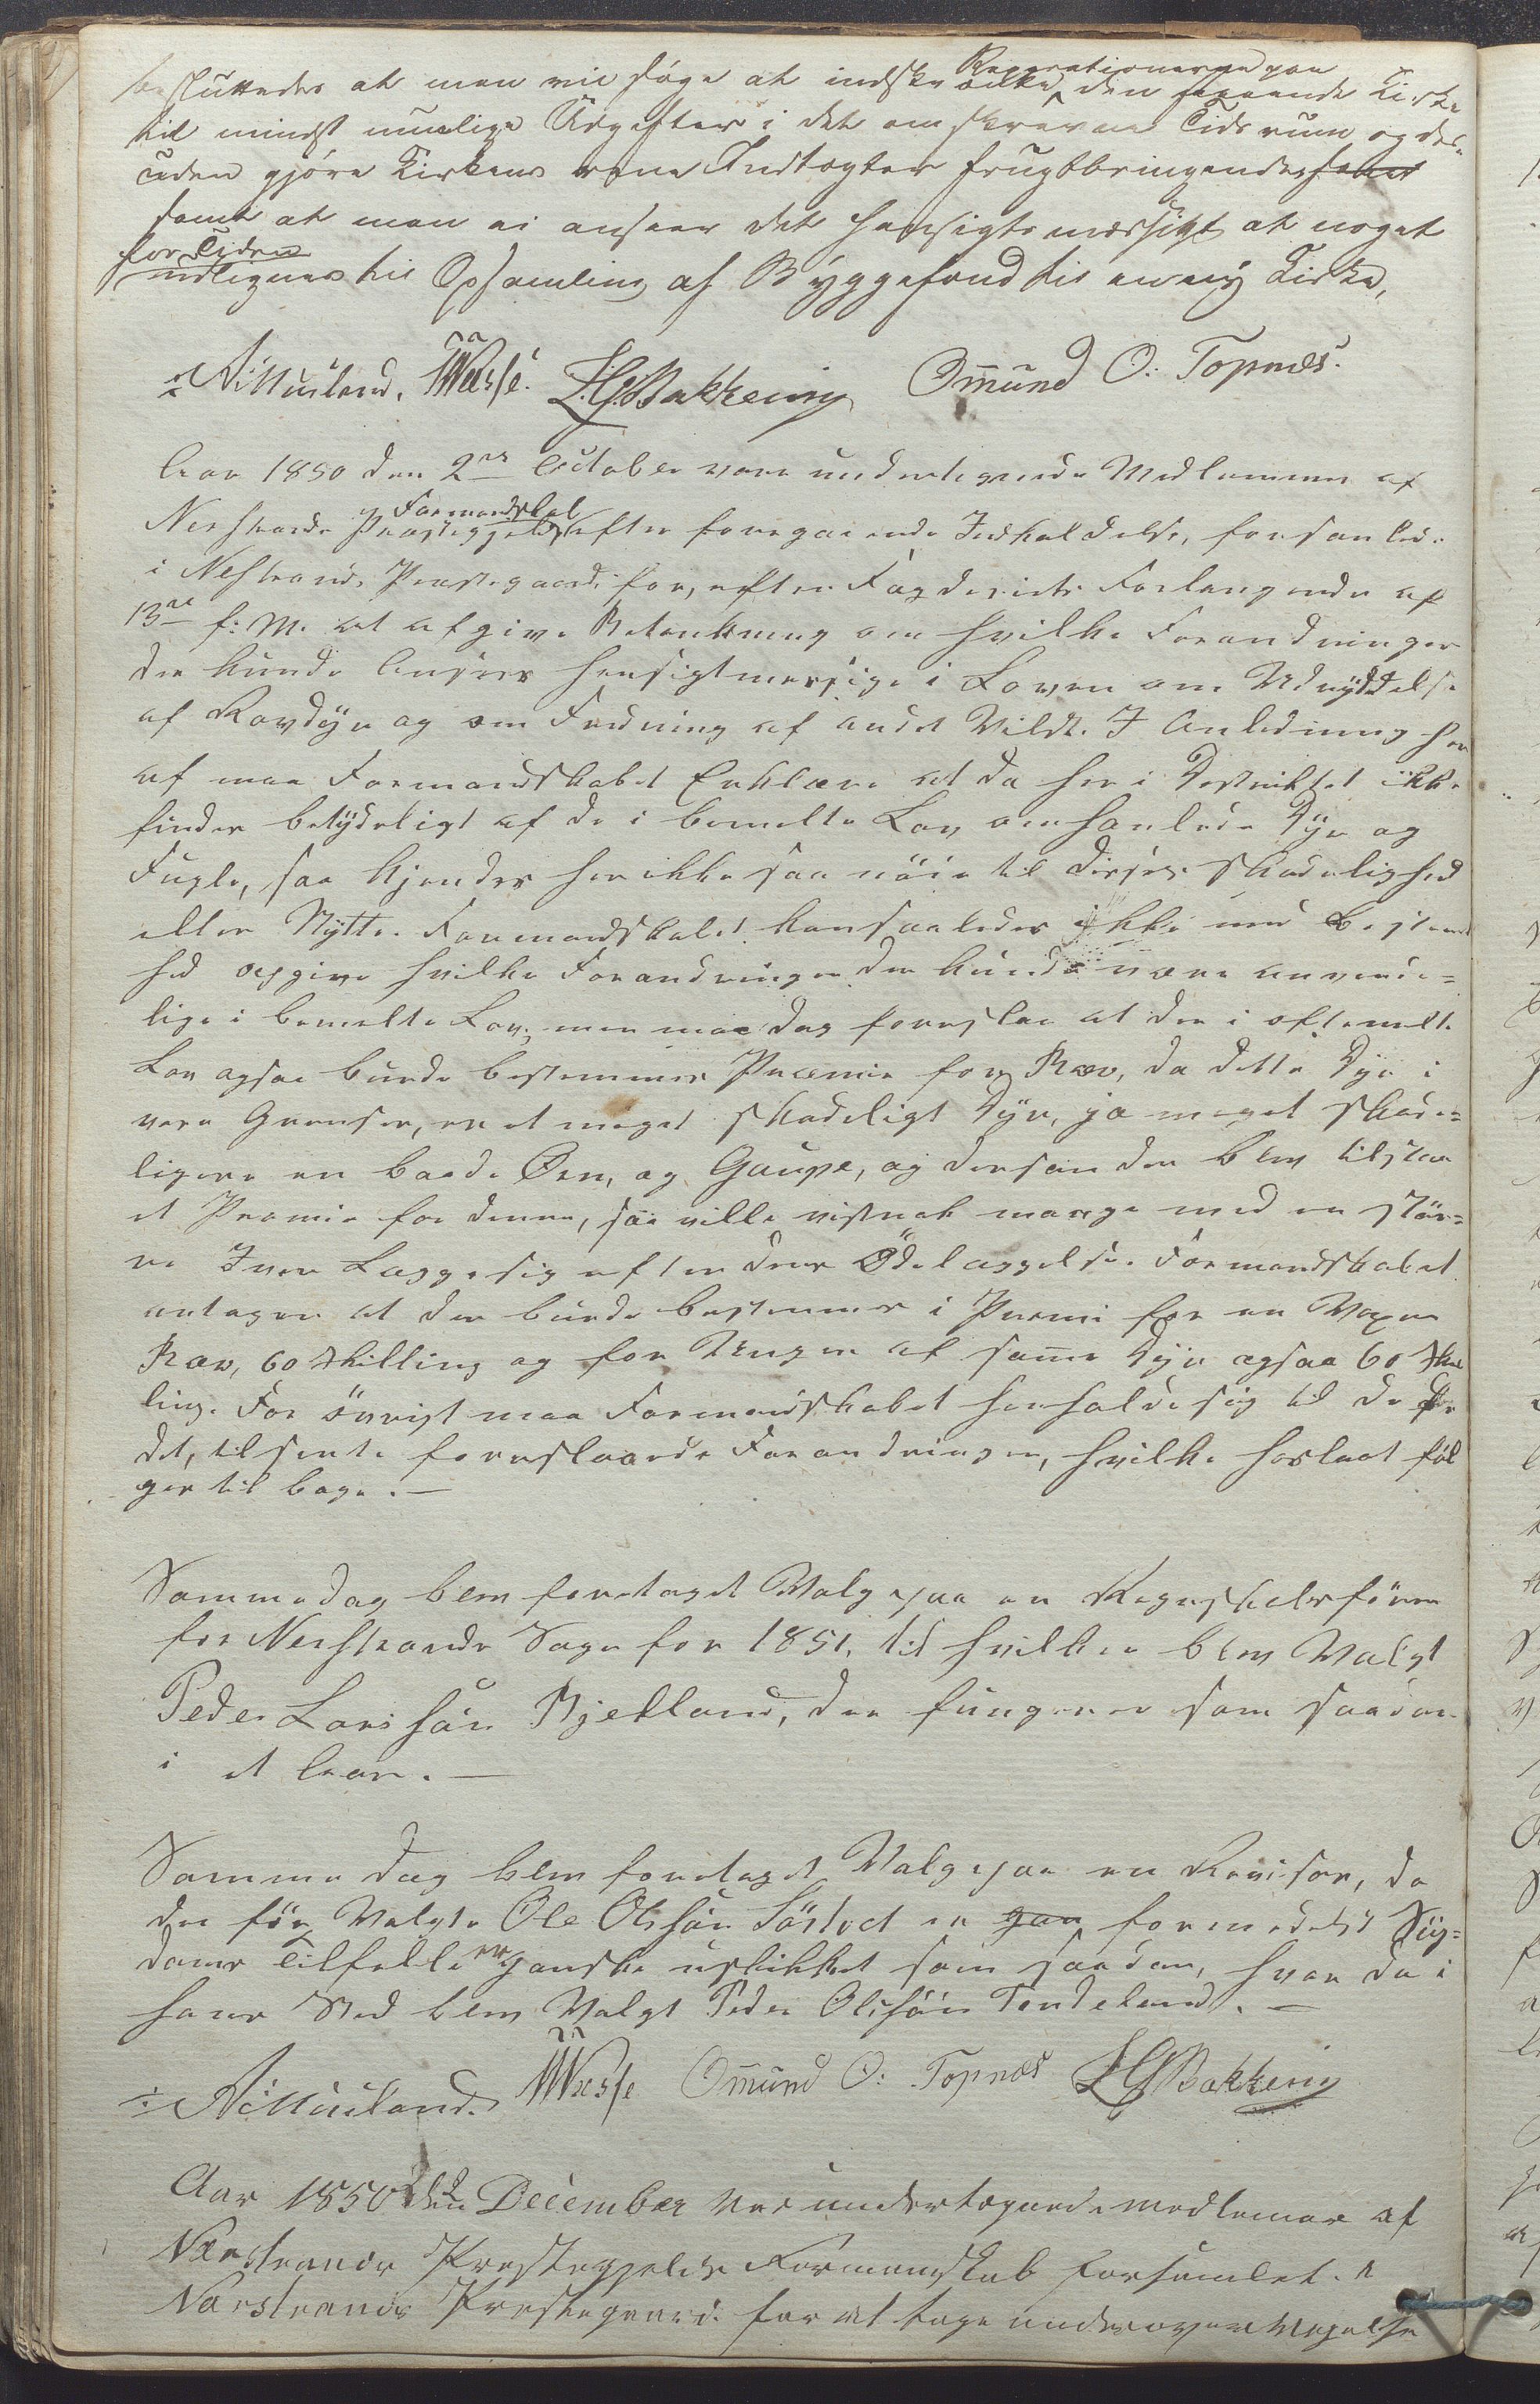 besluttedes at man vil søge at indskrænke Reparationerne paa den staaende Kirke
til mindst muelige Udgifter i det omskrevne Tidsrum og des-
uden gjøre Kirkens rene Indtægter frugtbringende
samt at man ei anseer det hensigtsmæssigt at noget
for Tiden udlignes til Opsamling af Byggefond til en ny Kirke,
Wasse. L. G. Bakkevig Omund O: Topnæs.
Aar 1850 den 2den October vare undertegnede Medlemmer af
Nerstrands Præstegjelds Formandskab efter foregaaende Indkaldelse, forsamlede
i Nestrands Præstegaard, for, efter Fogderiets Forlangende af
13de f: M. at afgive Betenkning om hvilke Forandringer
der kunde Ansees hensigtmessige i Loven om Udryddelse
af Rovdyr og om Fredning af andet Vildt. I Anledning her
af maa Formandskabet Erklære at da her i Destriktet ikke
findes betydeligt af de i bemelte Lov omhanlede Dyr og
Fugle, saa kjendes her ikke saa nöie til disses skadelighed
eller Nytte. Formandskabet kan saaledes ikke med Bestemt
hed opgive hvilke Forandringer der kunde være anvende=
lige i bemelte Lov, men maa dog foreslaa at der i oftemelte
Lov ogsaa burde bestemmes Præmie for Ræv, da dette Dyr i
vore Grenser, er et meget skadeligt Dyr, ja meget skade=
ligere en baade Örn, og Gaupe, og dersom der blev tilstaa
et Premie for denne, saa ville vistnok mange med en stör=
re Iver Legge sig efter dens Ödeleggelse. Formandskabet
antager at der burde bestemmes i Premi for en Voxen
Ræv, 60 Skilling og for Unger af samme Dyr ogsaa 60 Skil
ling. For övrigt maa Formandskabet henholde sig til de
det, tilsente foreslaaede Forandringer, hvilke hoslagt föl
ger til bage. —
Samme dag blev foretaget Valg paa en Regnskabsförer
for Nerstrands Sogn for 1851, til hvilken blev Valgt
Peder Larssön Bjelland, der fungerer som saadan
i et Aar. —
Samme dag blev foretaget Valg paa en Revisor, da
den för Valgte Ole Olssön er gan formedelst Syg=
doms Tilfelle er ganske uskikket som saadan, hvor da i
hans Sted blev Valgt Peder Olssön Tendeland. —
Wasse Omund O: Topnæs L G Bakkevig
Aar 1850 den December var undertegnede medlemer af
Nærstrands Prestegjelds Formanskab forsamlet i
Nærstrands Prestegaard for at tage under overveielse